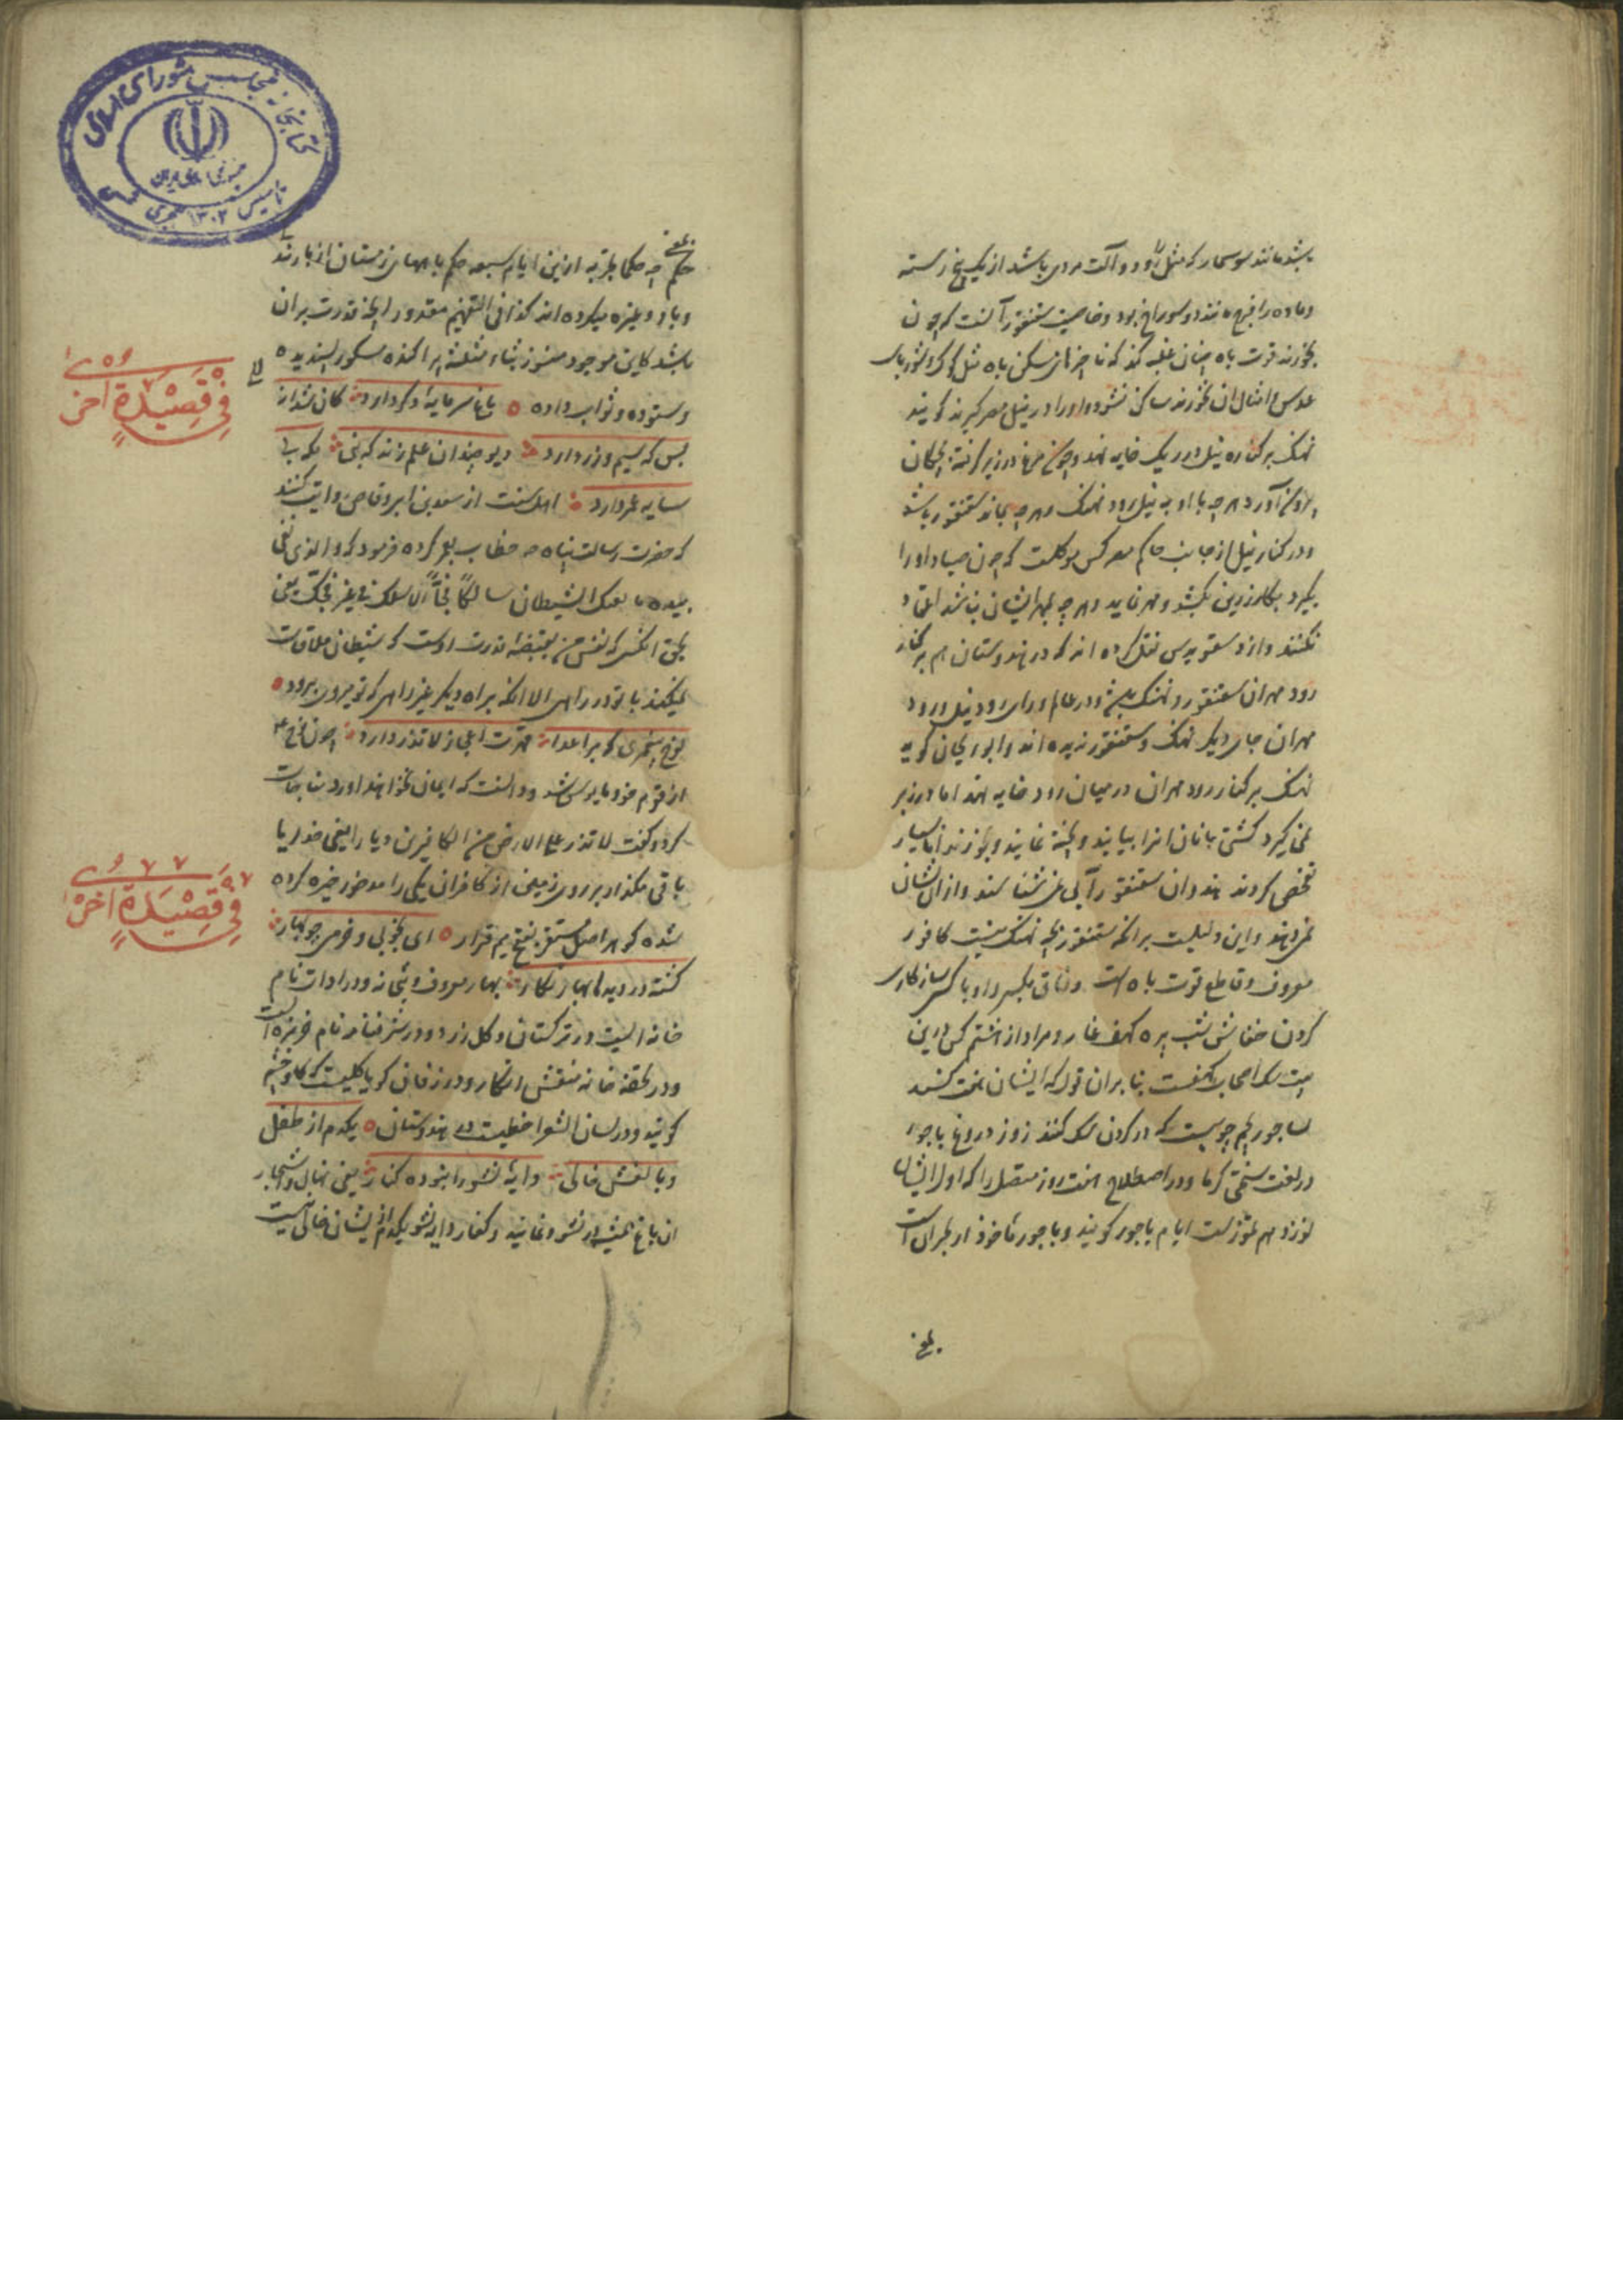 باشد مانند سوسمار که مثل او دو آلت مردی باشد از یک بیخ رسته
و ماده را فرج مانند دو سوراخ بود و خاصیت سقنقور آنست که چون
بخورند قوت باه چنان غلبه کند که تا چیزهای مسکن باه مثل
عدس و امثال آن نخورند ساکن نشود و او را در نیل مصر گیرند گویند
نهنگ بر کناره نیل در ریک خایه نهد و چون در زیر گرفته بچگان
بیرون آورد هرچه با او به نیل رود نهنگ و هرچه بماند سقنقور باشد
و در کنار نیل از جانب حاکم مصر کس موکلست که چون صیاد او را
بگیرد بکارد زرین بکشد و مهر نماید و هرچه بمهر ایشان نباشد اعتماد
نکنند و از دسقوریدس نقل کرده اند که در هندوستان هم بر کنار
رود مهران سقنقور و نهنگ و در عالم ورای رود نیل و رود
مهران جای دیگر نهنگ و سقنقور ندیده اند و ابو ریحان گوید
نهنگ بر کنار رود مهران در میان رود خایه نهد اما در زیر
نمی گیرد کشتی بانان آنرا بیابند و پخته نمایند و بخورند اما بسیار
تفحص کردند هندوان سقنقور را نمی شناسند و از آن نشان
نمی دهند و این دلیلست بر آنکه سقنقور بچه نهنگ نیست کافور
معروف و قاطع قوت باه است وفاق بکسر واو با کسی سازگاری
کردن خفاش شب پره کهف غار و مراد از هشتم کس درین
بیت سگ اصحاب کهفست بنا بران قول که ایشان هفت کسند
ساجور بجیم چوبیست که در گردن سگ کنند روز دروغ باجور
در لغت سختی گرما و در اصطلاح هفت روز متصل را که اول ایشان
نوزدهم تموزست ایام باجور گویند و باجور مأخوذ از بحرانست
بلغ
بلغ
حکم چه حکما بتجربه از این ایام سبعه حکم بماههای زمستان از بارندگی
و باد و غیره میکرده اند کذا فی التفهیم مقدور آنچه قدرت بران
باشد کاین موجود منثور بثاء مثلثه پراکنده مشکور پسندیده
و ستوده و ثواب داده باغ سرمایه دگر دارد کان شد از
بس که سیم و زر دارد دیو چندان علم زند که نبی بکه بی
سایه عمر دارد اهل سنت از سعد بن ابی وقاص روایت کنند
که حضرت رسالت پناه خطاب بعمر کرده فرمود که والذی نفسی
بیده ما لقیک الشیطان سالکا فجا الا سلک فجا غیر فجک یعنی
بحق آنکس که نفس من بقبضه قدرت اوست که شیطان ملاقات
نمیکند با تو در راهی الا آنکه براه دیگر غیر راهی که تو میروی برود
نوح پیغمبری که بر اعدا قهرت اعجاز لا تذر دارد چون نوح
از قوم خود مایوس شد و دانست که ایمان نخواهند آورد مناجات
کرد و گفت لا تذر علی الارض من الکافرین دیارا یعنی خدایا
باقی مگذار بر روی زمین از کافران یکی را
شده که هر اصل مستقر بفتح میم قرار ای بخوبی و خرمی چو بهار
گشته در دیدها بهار نگار بهار معروف و بتخانه و در ادات نام
خانه ایست در ترکستان و گل زرد و در شرفنامه نام خربزه است
ودر خانه منقش نگار و در زفان گویا گلیست که گاو چشم
گویند و در لسان الشعرا خطیست در هندوستان یکدم از طفل
و بالغش خالی دایه نشو را نبوده کنار یعنی نهال و اشجار
آن باغ همیشه در نشو و نمایند و کنار دایه نشو یکدم از ایشان خالی نیست
فی قصیدة اخری
فی قصیدة اخری
کتابخانه مجلس شورای اسلامی
تأسیس ۱۳۰۲